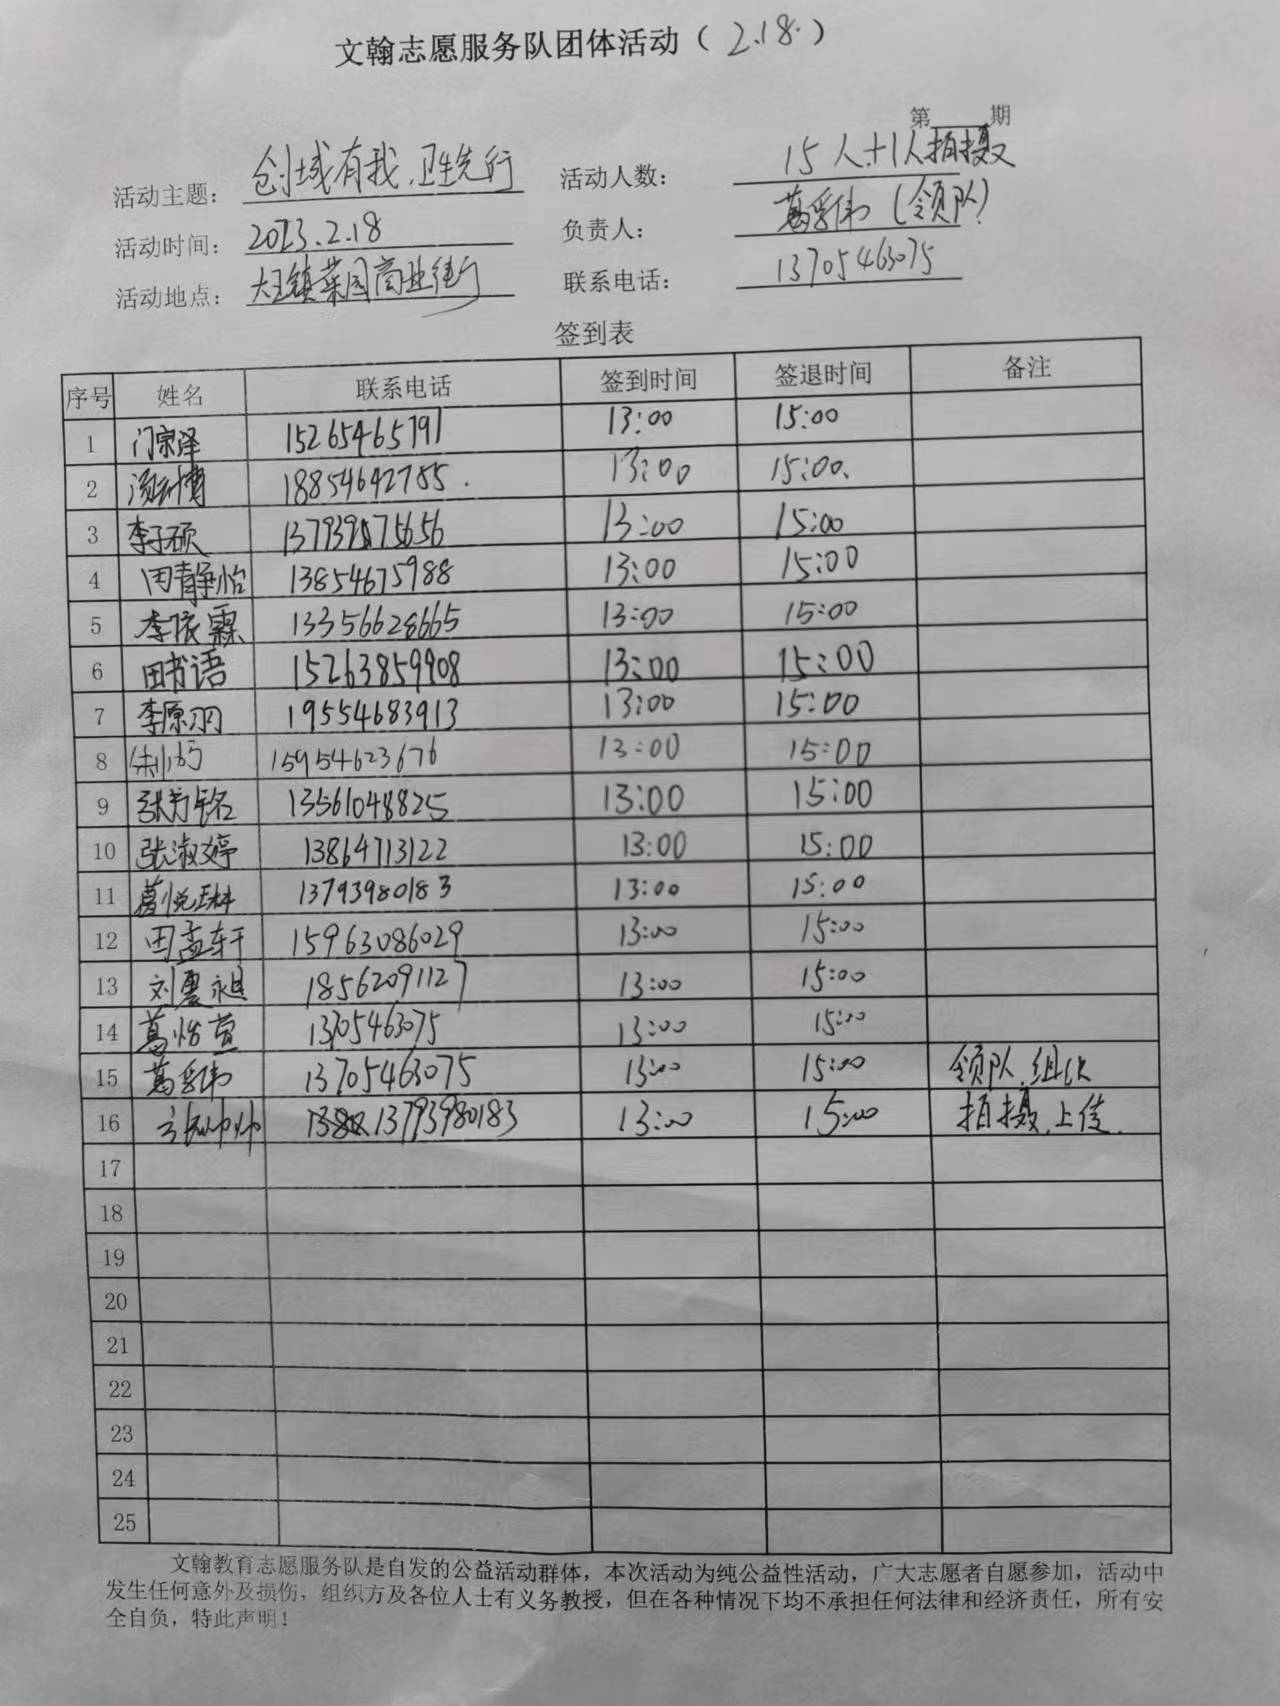 文翰志愿服务队团体活动（2.18.）
第 期
活动主题： 创城有我.卫生先行 活动人数： 15人+1人拍摄
活动时间： 2023.2.18 负责人： 葛秀伟（领队）
活动地点： 大王镇菜园商业街 联系电话： 13705463075
签到表
序号 姓名 联系电话 签到时间 签退时间 备注
1 门宗泽 15265465791 13:00 15:00
2 18854642785. 13:00 15:00.
3 李子硕 13:00 15:00
4 田静怡 13854675988 13:00 15:00
5 李依霖 13356628665 13:00 15:00
6 田书语 15263859908 13:00 15:00
7 李原羽 19554683913 13:00 15:00
8 15954623676 13:00 15:00
9 张铭 13561048825 13:00 15:00
10 张淑婷 13864713122 13:00 15:00
11 葛悦琳 13793980183 13:00 15:00
12 田孟轩 15963086029 13:00 15:00
13 刘震 18562091127 13:00 15:00
14 葛怡萱 13705463075 13:00 15:00
15 葛秀伟 13705463075 13:00 15:00 领队.组织
16 13793980183 13:00 15:00 拍摄.上传.
17
18
19
20
21
22
23
24
25
文翰教育志愿服务队是自发的公益活动群体，本次活动为纯公益性活动，广大志愿者自愿参加，活动中
发生任何意外及损伤，组织方及各位人士有义务教授，但在各种情况下均不承担任何法律和经济责任，所有安
全自负，特此声明！